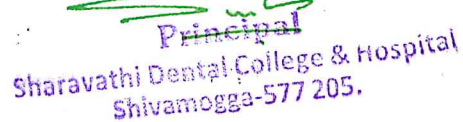 Principal
Sharavathi Dental College & Hospital
Shivamogga-577 205.